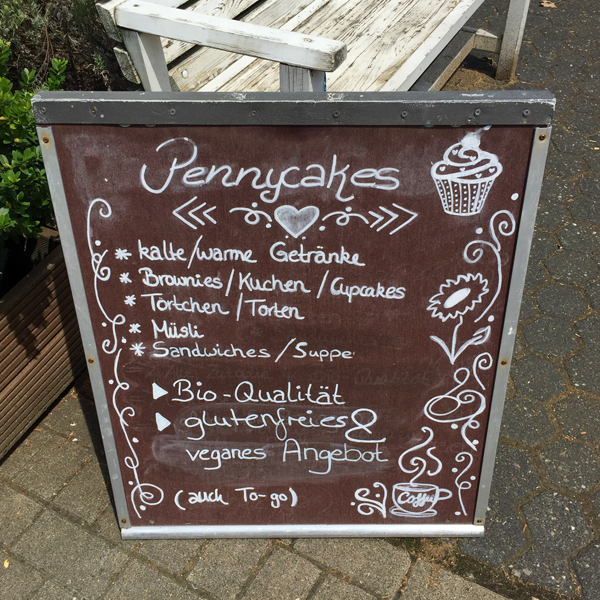 Pennycakes
* kalte/warme Getränke
* Brownies/Kuchen/Cupcakes
* Törtchen/Torten
* Müsli
* Sandwiches/Suppe
▶ Bio-Qualität
▶ glutenfreies &
veganes Angebot
(auch To-go)
Coffee